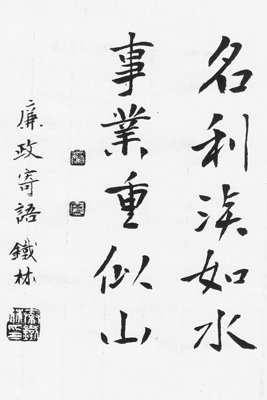 名利淡如水
事業重似山
廉政寄語 鐵林